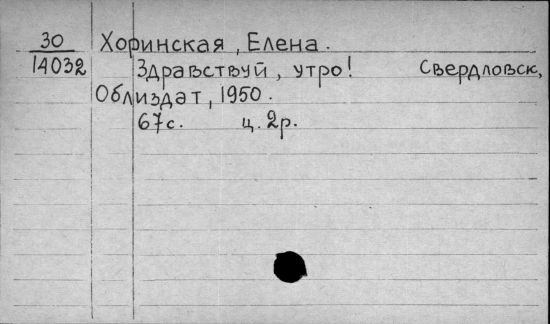 30 Хоринская, Елена.
14032 Здравствуй, утро! Свердловск,
Облиздат, 1950.
67с. ц. 2р.